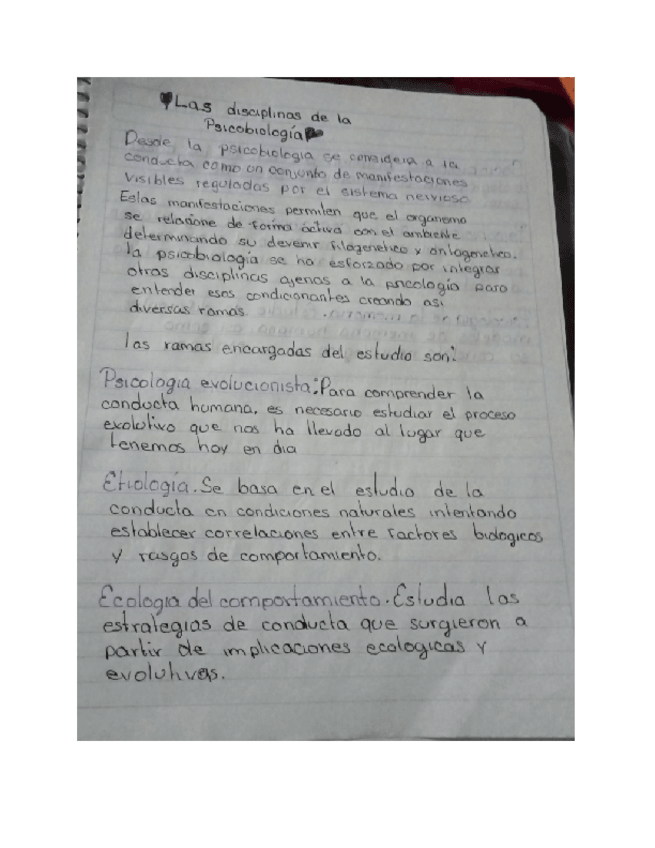 Las disciplinas de la
Psicobiología
Desde la psicobiologia se considera a la
conducta como un conjunto de manifestaciones
visibles reguladas por el sistema nervioso
Estas manifestaciones permiten que el organismo
se relacione de forma activa con el ambiente
determinando su devenir filogenetico y ontogenetico.
la psicobiología se ha esforzado por integrar
otras disciplinas ajenas a la psicología para
entender esos condicionantes creando asi
diversas ramas.
las ramas encargadas del estudio son:
Psicologia evolucionista: Para comprender la
conducta humana, es necesario estudiar el proceso
evolutivo que nos ha llevado al lugar que
tenemos hoy en dia
Etiología. Se basa en el estudio de la
conducta en condiciones naturales intentando
establecer correlaciones entre factores biologicos
y rasgos de comportamiento.
Ecologia del comportamiento. Estudia las
estrategias de conducta que surgieron a
partir de implicaciones ecologicas y
evolutivas.